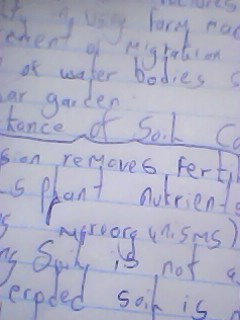 using farm mac
ement of migration
of water bodies
ar garden
tance of Soil Co
sion removes fertil
s plant nutrients
microorganisms)
is not a
eroded soil is n